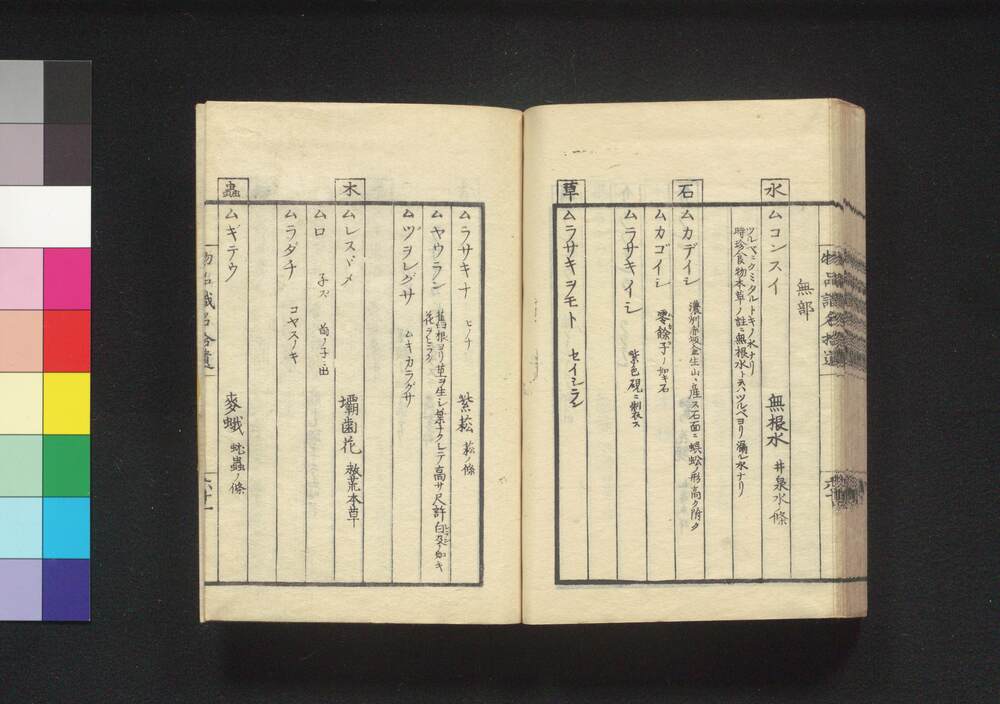 物品識名拾遺
無部
水
ムコンスイ 無根水 井泉水ノ條
ツルベニクミタルトキノ水ナリ
時珍食物本草ノ註ニ無根水トハツルベヨリ漏ル水ナリ
石
ムカデイシ 濃州赤坂金生山ニ産ス石面ニ蜈蚣ノ形高ク附ク
ムカゴイシ 零餘子ノ如キ石
ムラサキイシ 紫色硯ニ製ス
草
ムラサキヲモト セイシラン
ムラサキナ ヒノナ 紫菘 菘ノ條
ムヤウラン 舊根ヨリ草ヲ生シ葉ナクシテ高サ尺許白及ノ如キ
花ヲヒラク
ムツヲレグサ ムキカラグサ
木
ムレスヾメ 壩齒花 救荒本草
ムロ 子ズ 前ノ子ニ出
ムラダチ コヤスノキ
蟲
ムギテウ 麥蛾 蛀蟲ノ條
物品識名拾遺
六十一